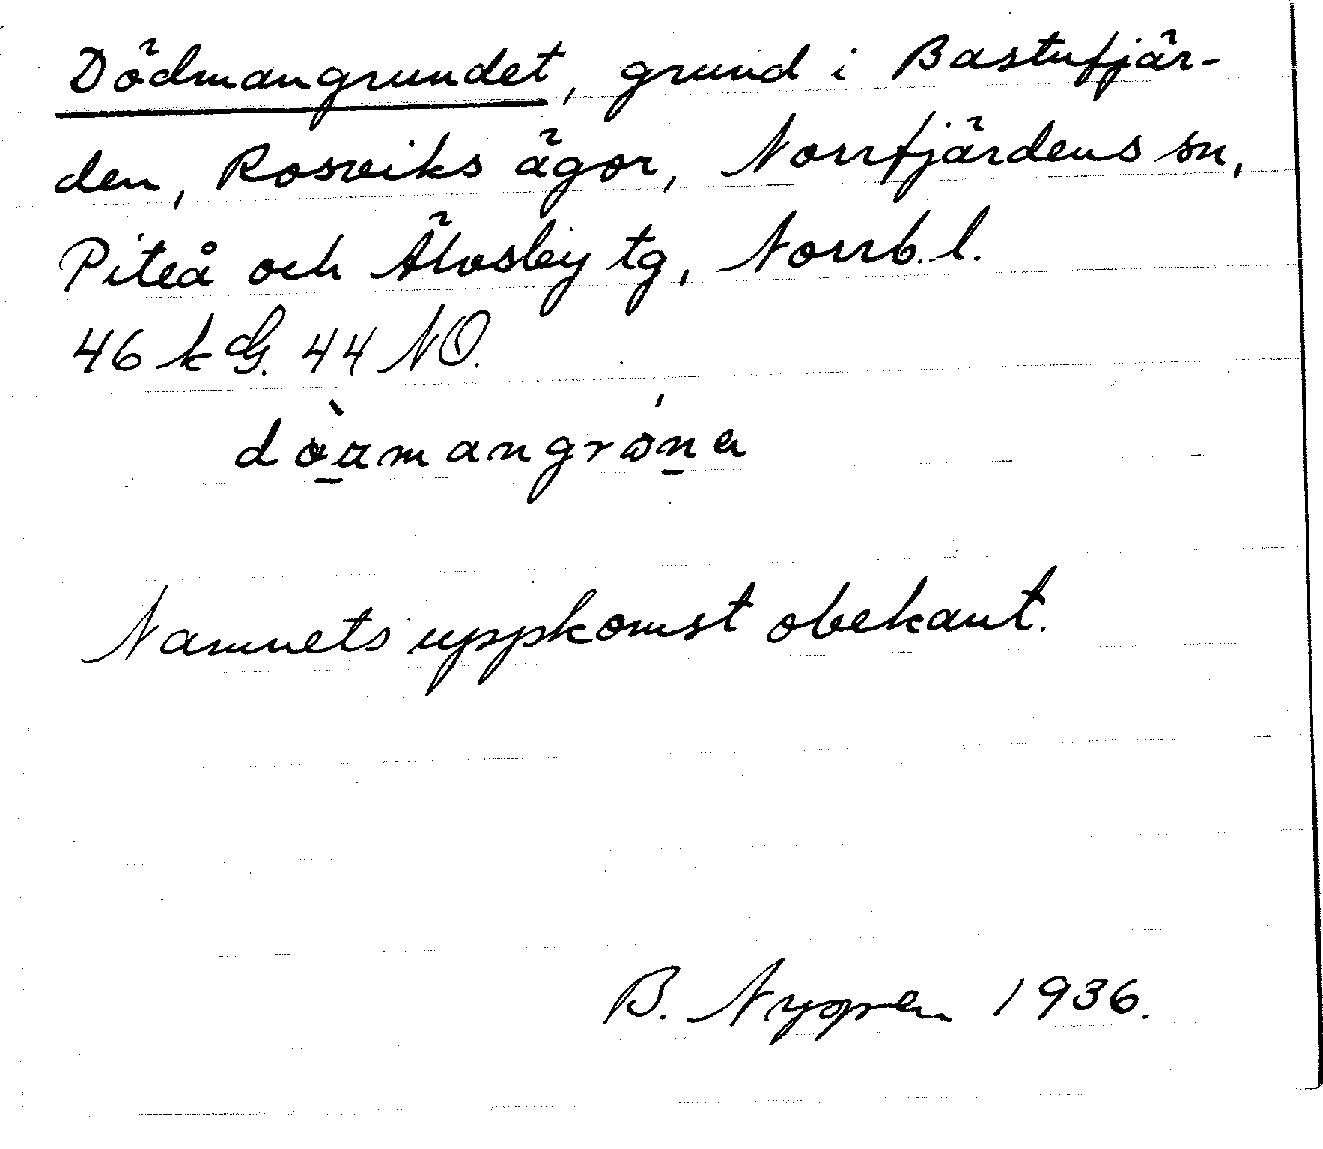 Dödmangrundet, grund i Bastufjär-
den, Rosviks ägor, Norrfjärdens sn,
Piteå och Älvsby tg, Norrb. l.
46 k G. 44 NO.
Namnets uppkomst obekant.
B. Nygren 1936.